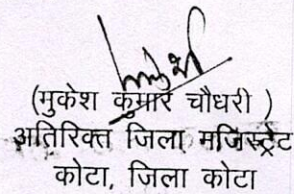 (मुकेश कुमार चौधरी )
अतिरिक्त जिला मजिस्ट्रेट
कोटा, जिला कोटा